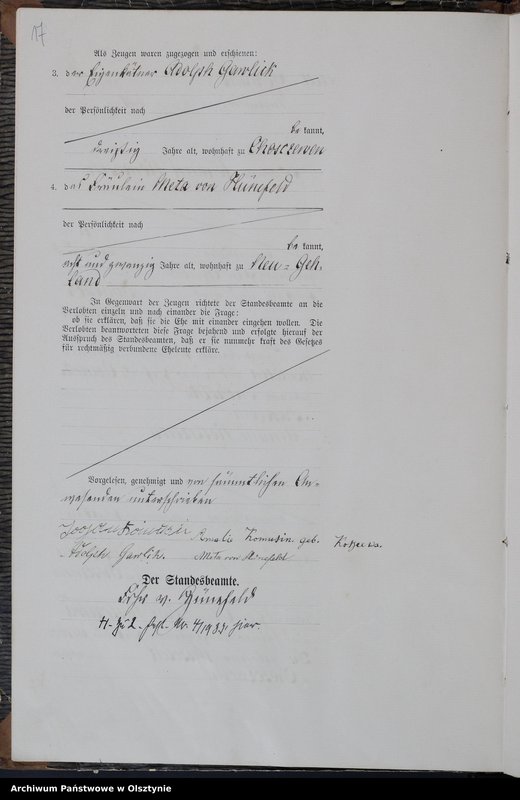 17
Als Zeugen waren zugezogen und erschienen:
3. der Eigenkätner Adolph Gawlick
der Persönlichkeit nach
be kannt,
dreißig Jahre alt, wohnhaft zu Chosczewen
4. das Fräulein Meta von Hünefeld
der Persönlichkeit nach
be kannt,
acht und zwanzig Jahre alt, wohnhaft zu Neu-Geh-
land
In Gegenwart der Zeugen richtete der Standesbeamte an die
Verlobten einzeln und nach einander die Frage:
ob sie erklären, daß sie die Ehe mit einander eingehen wollen. Die
Verlobten beantworteten diese Frage bejahend und erfolgte hierauf der
Ausspruch des Standesbeamten, daß er sie nunmehr kraft des Gesetzes
für rechtmäßig verbundene Eheleute erkläre.
Vorgelesen, genehmigt und von sämmtlichen An-
wesenden unterschrieben
Amalie Komussin geb.
Adolph Gawlik. Meta von Hünefeld
Der Standesbeamte.
v. Hünefeld
Archiwum Państwowe w Olsztynie